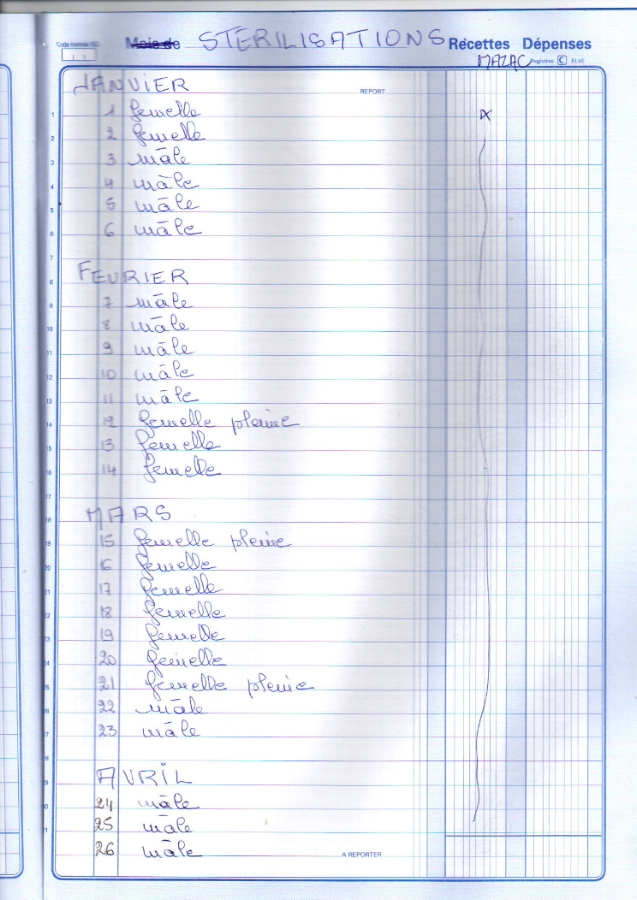 Mois de STÉRILISATIONS Recettes Dépenses
MAZAC
JANVIER REPORT
1 femelle x
2 femelle
3 mâle
4 mâle
5 mâle
6 mâle
FEVRIER
7 mâle
8 mâle
9 mâle
10 mâle
11 mâle
12 femelle pleine
13 femelle
14 femelle
MARS
15 femelle pleine
16 femelle
17 femelle
18 femelle
19 femelle
20 femelle
21 femelle pleine
22 mâle
23 mâle
AVRIL
24 mâle
25 mâle
26 mâle
A REPORTER